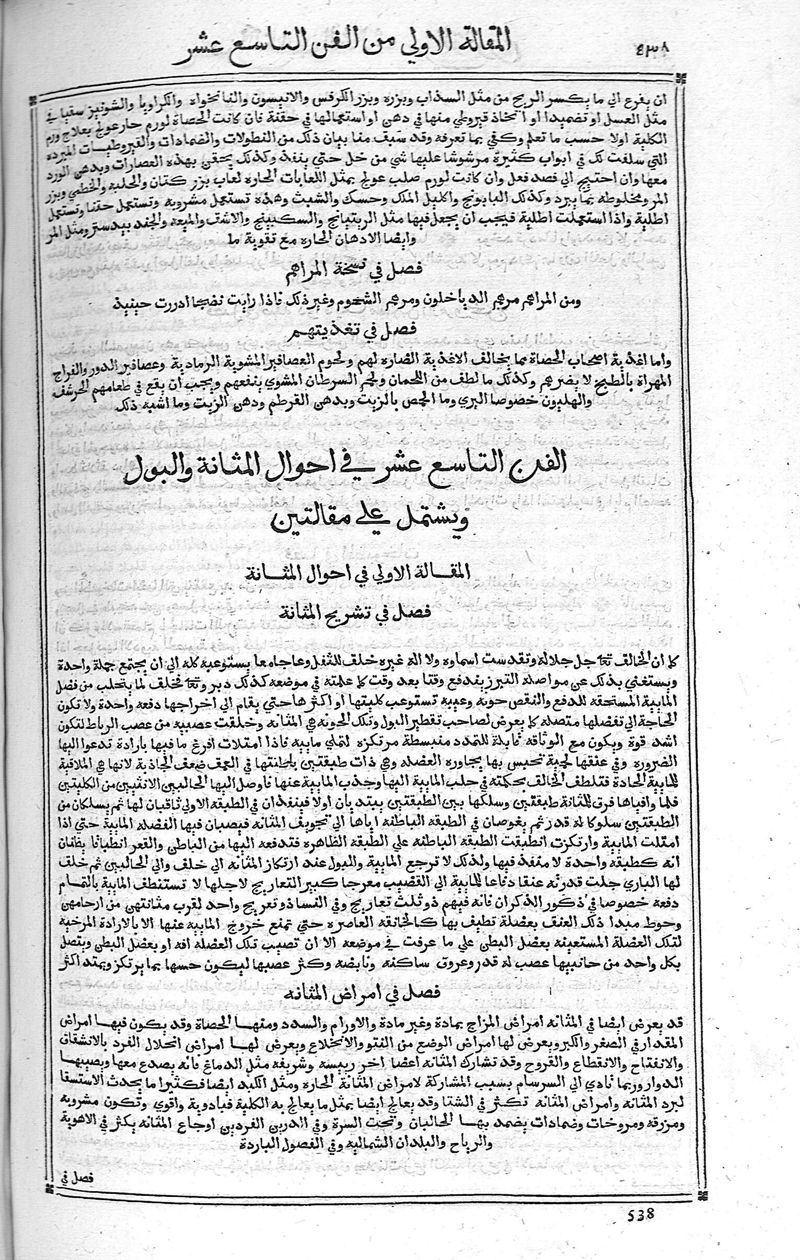 ٤٣٨ المقالة الاولي من الفن التاسع عشر
ان يفزع الي ما يكسر الريح من مثل السذاب وبزره وبزر الكرفس والانيسون والنانخواه والكراويا والشونيز سقيا في
مثل العسل او تضميدا او اتخاذ قيروطي منها في دهن او استعمالها في حقنة فان كانت الحصاة لورم حار عولج بعلاج ورم
الكلية اولا حسب ما تعلم وكفي بما تعرفه وقد سبق منا بيان ذلك من النطولات والضمادات والقيروطيات المبرده
التي سلفت لك في ابواب كثيرة مرشوشا عليها شي من خل حتي ينفذ وكذلك يحقن بهذه العصارات وبدهن الورد
معها وان احتيج الي فصد فعل وان كانت لورم صلب عولج بمثل اللعابات الحاره لعاب بزر كتان والحلبه والخطمي وبزر
المرو مخلوطه بما يبرد وكذلك البابونج واكليل الملك وحسك والشبث وهذه تستعمل مشروبه وتستعمل حقنا وتستعمل
اطلية واذا استعملت اطلية فيجب ان يجعل فيها مثل الريتيانج والسكبينج والاشق والميعه والجند بيدستر ومثل المر
وايضا الادهان الحاره مع تقوية ما
فصل في نسخة المراهم
ومن المراهم مرهم الدياخلون ومرهم الشحوم وغير ذلك فاذا رايت نضجا ادررت حينيذ
فصل في تغذيتهم
واما اغذية اصحاب الحصاة بما يخالف الاغذية الضاره لهم ولحوم العصافير المشوية الرمادية وعصافير الدور والفراج
المهراة بالطبخ لا يضرهم وكذلك ما لطف من اللحمان ولحم السرطان المشوي ينفعهم ويجب ان يقع في طعامهم الحرشف
والهليون خصوصا البري وما الحمص بالزيت وبدهن القرطم ودهن الزيت وما اشبه ذلك
الفن التاسع عشر في احوال المثانة والبول
ويشتمل علي مقالتين
المقالة الاولي في احوال المثانة
فصل في تشريح المثانة
كما ان الخالف تعا جل جلاله وتقدست اسماوه ولا اله غيره خلف للثفل وعا جامعا يستوعبه كله الي ان يجتمع جملة واحدة
ويستغني بذلك عن مواصله التبرز بندفع وقتا بعد وقت كما علمته في موضعه كذلك دبر وتعا فخلف لما يتحلب من فضل
المايية المستحقه للدفع والنفض جوبه وعيبه تستوعب كليتها او اكثرها حتي يقام الي اخراجها دفعه واحدة ولا تكون
الحاجة الي تفضلها متصله كما يعرض لصاحب تقطير البول وتلك الجوبه هي المثانه وخلقت عصبيه من عصب الرباط لتكون
اشد قوة ويكون مع الوثاقه قابلة للتمدد منبسطة مرتكزه لتملي مابيه فاذا امتلات افرغ ما فيها بارادة تدعوا اليها
الضروره وفي عنقها لحمية تحبس بها بمجاوره العضله وهي ذات طبقتين باطنتها في العمف ضعف الخارجة لانها هي الملاقية
للمايية الحادة فتلطف الخالف بحكمته في جلب المايية اليها وجذب المايية عنها فاوصل اليها الحالبين الاتيين من الكليتين
فلما وافياها فرق للمثانة طبقتين وسلكها بين الطبقتين يبتديان اولا فينفذان في الطبقه الاولي ثاقبان لها ثم يسلكان من
الطبقتين سلوكا له قدر ثم يغوصان في الطبقه الباطنه اياها الي تجويف المثانه فيصبان فيها الفضله المايية حتي اذا
امتلت المايية وارتكزت انطبقت الطبقه الباطنه علي الطبقه الظاهره فتندفعه اليها من الباطن والقعر انطباقا يظنان
انه كطبقه واحدة لا منفذ فيها ولذلك لا ترجع المايية والبول عند ارتكاز المثانه الي خلف والي الحالبين ثم خلف
لها الباري جلت قدرته عنقا دفاعا للمايية الي القضيب معرجا كبير التعاريج لاجلها لا تستنطف المايية بالتمام
دفعه خصوصا في ذكور الذكران فانه فيهم ذو ثلث تعاريج وفي النسا ذو تعريج واحد لقرب مثانتهن من ارحامهن
وحوط مبدا ذلك العنف بعضلة تطيف بها كالخانقه العاصره حتي تمنع خروج المايية عنها الا بالاراده المرخية
لتلك العضلة المستعينه بعضل البطن علي ما عرفت في موضعه الا ان تصيب تلك العضله افه او بعضل البطن ويتصل
بكل واحد من جانبيها عصب له قدر وعروق ساكنه ونابضه وكثر عصبها ليكون حسها بما يرتكز ويمتد اكثر
فصل في امراض المثانه
قد يعرض ايضا في المثانه امراض المزاج بمادة وغير مادة والاورام والسدد ومنها الحصاة وقد يكون فيها امراض
المقدار في الصغر والكبر ويعرض لها امراض الوضع من الفتو والانخلاع ويعرض لها امراض انحلال الفرد بالانشقاق
والانفتاح والانقطاع والقروح وقد تشارك المثانه اعضا اخر رييسه وشريفه مثل الدماغ فانه يصدع معها ويصيبها
الدوار وربما تادي الي السرسام بسبب المشاركة لامراض المثانة الحاره ومثل الكبد ايضا فكثيرا ما يحدث الاستسقا
لبرد المثانه وامراض المثانه تكثر في الشتا وقد يعالج ايضا بمثل ما يعالج به الكلية فبادوية واقوي وتكون مشروبه
ومزرقه ومروخات وضمادات يضمد بها الحالبان وتحت السرة وفي الدرين الفردين اوجاع المثانه يكثر في الاهوية
والرياح والبلدان الشماليه وفي الفصول الباردة
فصل في
538